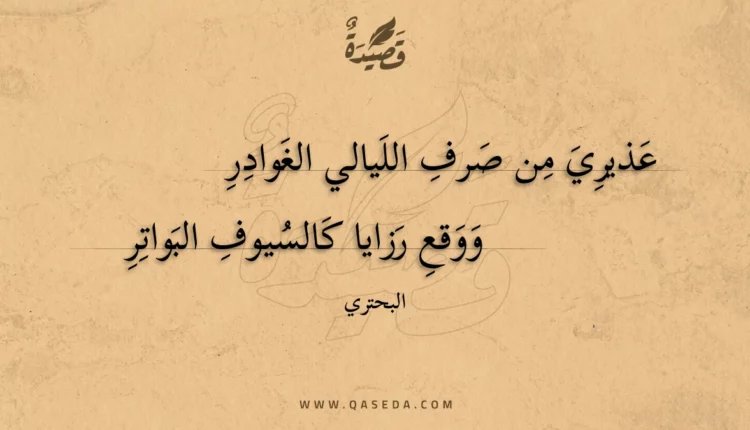 قَصِيْدَةٌ
عَذيرِيَ مِن صَرفِ اللَيالي الغَوادِرِ
وَوَقعِ رَزايا كَالسُيوفِ البَواتِرِ
البحتري
WWW.QASEDA.COM